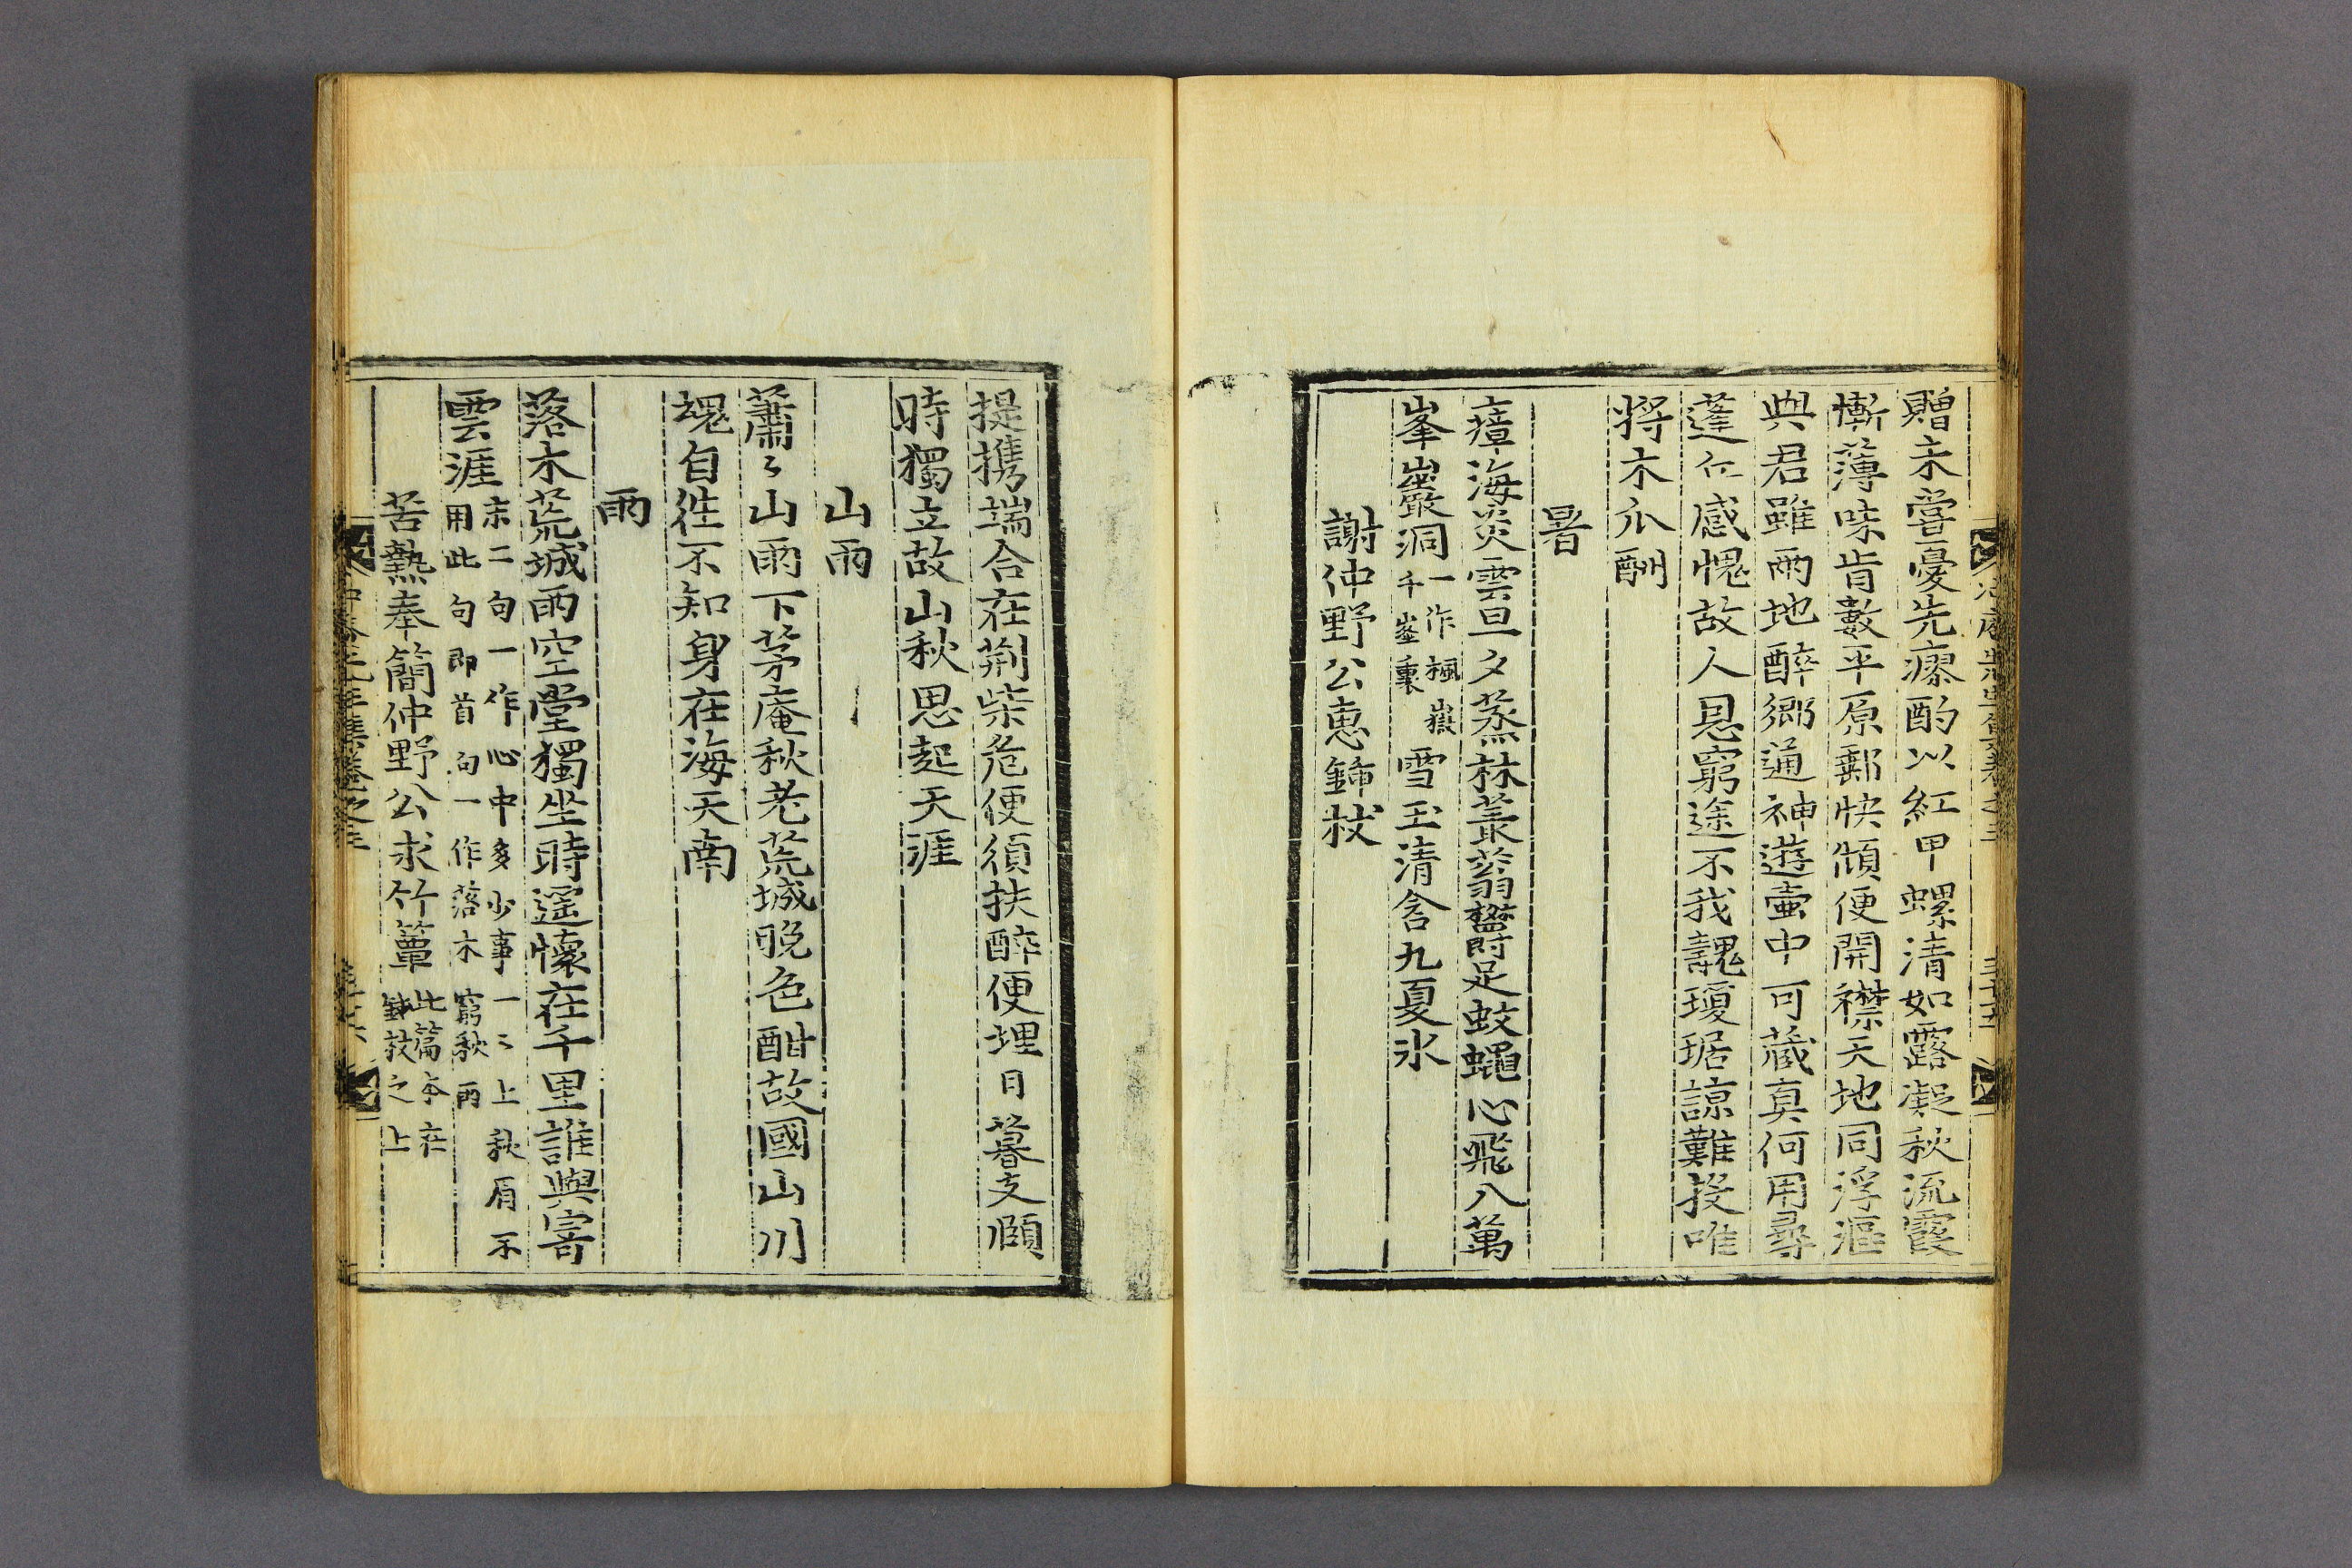 贈未嘗憂先瘳酌以紅甲螺清如露凝秋流霞
慚薄味肯數平原郵快傾便開襟天地同浮漚
與君雖兩地醉鄕通神遊壷中可藏真何用尋
蓬仁感愧故人恩窮途不我醜瓊琚諒難投唯
將木爪酬
暑
瘴海炎雲旦夕蒸林叢蓊鬱足蚊蠅心飛八萬
峯巖洞
一作楓嶽
千峯裏
雪玉淸含九夏氷
謝仲野公惠錦杖
提携端合在荆柴危便須扶醉便埋日暮支頤
時獨立故山秋思起天涯
山雨
蕭〻山雨下茅庵秋老荒城晩色酣故國山川
塊自徃不知身在海天南
雨
落木荒城雨空堂獨坐時遥懷在千里誰與寄
雲涯
末二句一作心中多少事一〻上秋眉不
用此句卽首句一作落木窮秋雨
苦熱奉簡仲野公求竹簟
此篇本在
錦杖之上